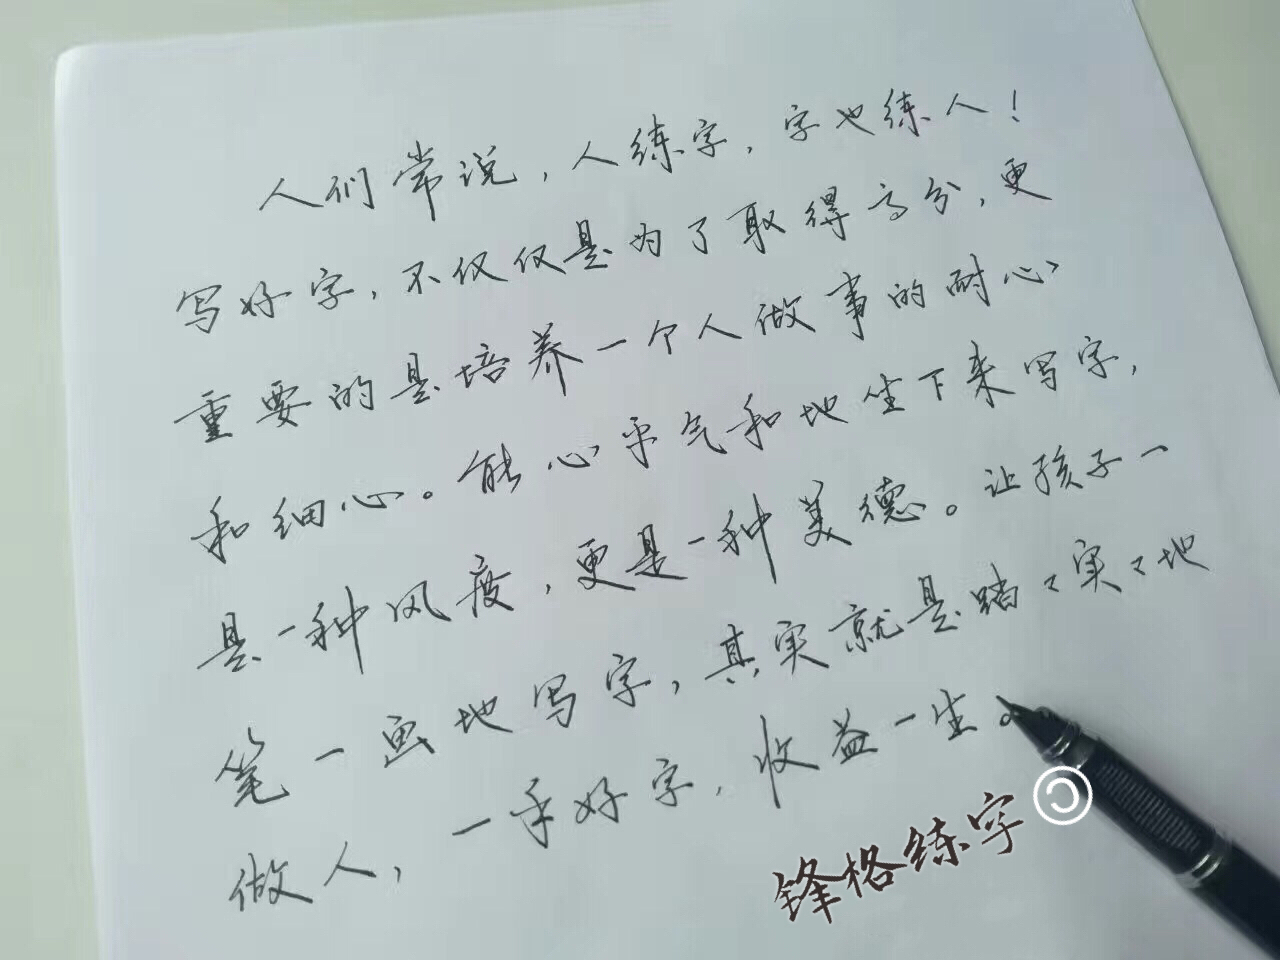 人们常说，人练字，字也练人！
写好字，不仅仅是为了取得高分，更
重要的是培养一个人做事的耐心
和细心。能心平气和地坐下来写字，
是一种风度，更是一种美德。让孩子一
笔一画地写字，其实就是踏々实々地
做人，一手好字，收益一生。
锋格练字